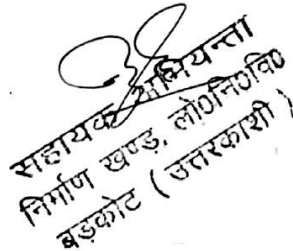 सहायक अभियन्ता
निर्माण खण्ड, लो०नि०वि०
बड़कोट ( उत्तरकाशी )